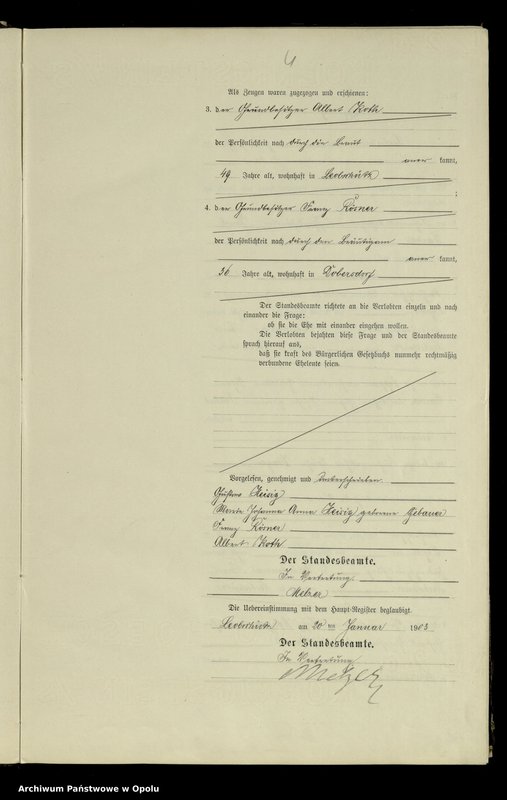 4
Als Zeugen waren zugezogen und erschienen:
3. der Grundbesitzer Albert Kothe
der Persönlichkeit nach durch die Braut
aner kannt,
49 Jahre alt, wohnhaft in Leobschütz
;
4. der Grundbesitzer Franz Körner
der Persönlichkeit nach durch den Bräutigam
aner kannt,
36 Jahre alt, wohnhaft in Dobersdorf
Der Standesbeamte richtete an die Verlobten einzeln und nach
einander die Frage:
ob sie die Ehe mit einander eingehen wollen.
Die Verlobten bejahten diese Frage und der Standesbeamte
sprach hierauf aus,
daß sie kraft des Bürgerlichen Gesetzbuchs nunmehr rechtmäßig
verbundene Eheleute seien.
Vorgelesen, genehmigt und unterschrieben.
Gustav Zeisig
Maria Johanna Anna Zeisig geborene Gebauer
Franz Körner
Albert Kothe
Der Standesbeamte.
In Vertretung
Melzer
Die Uebereinstimmung mit dem Haupt-Register beglaubigt.
Leobschütz am 20 ten Januar 1903
Der Standesbeamte.
In Vertretung
Melzer
Archiwum Państwowe w Opolu